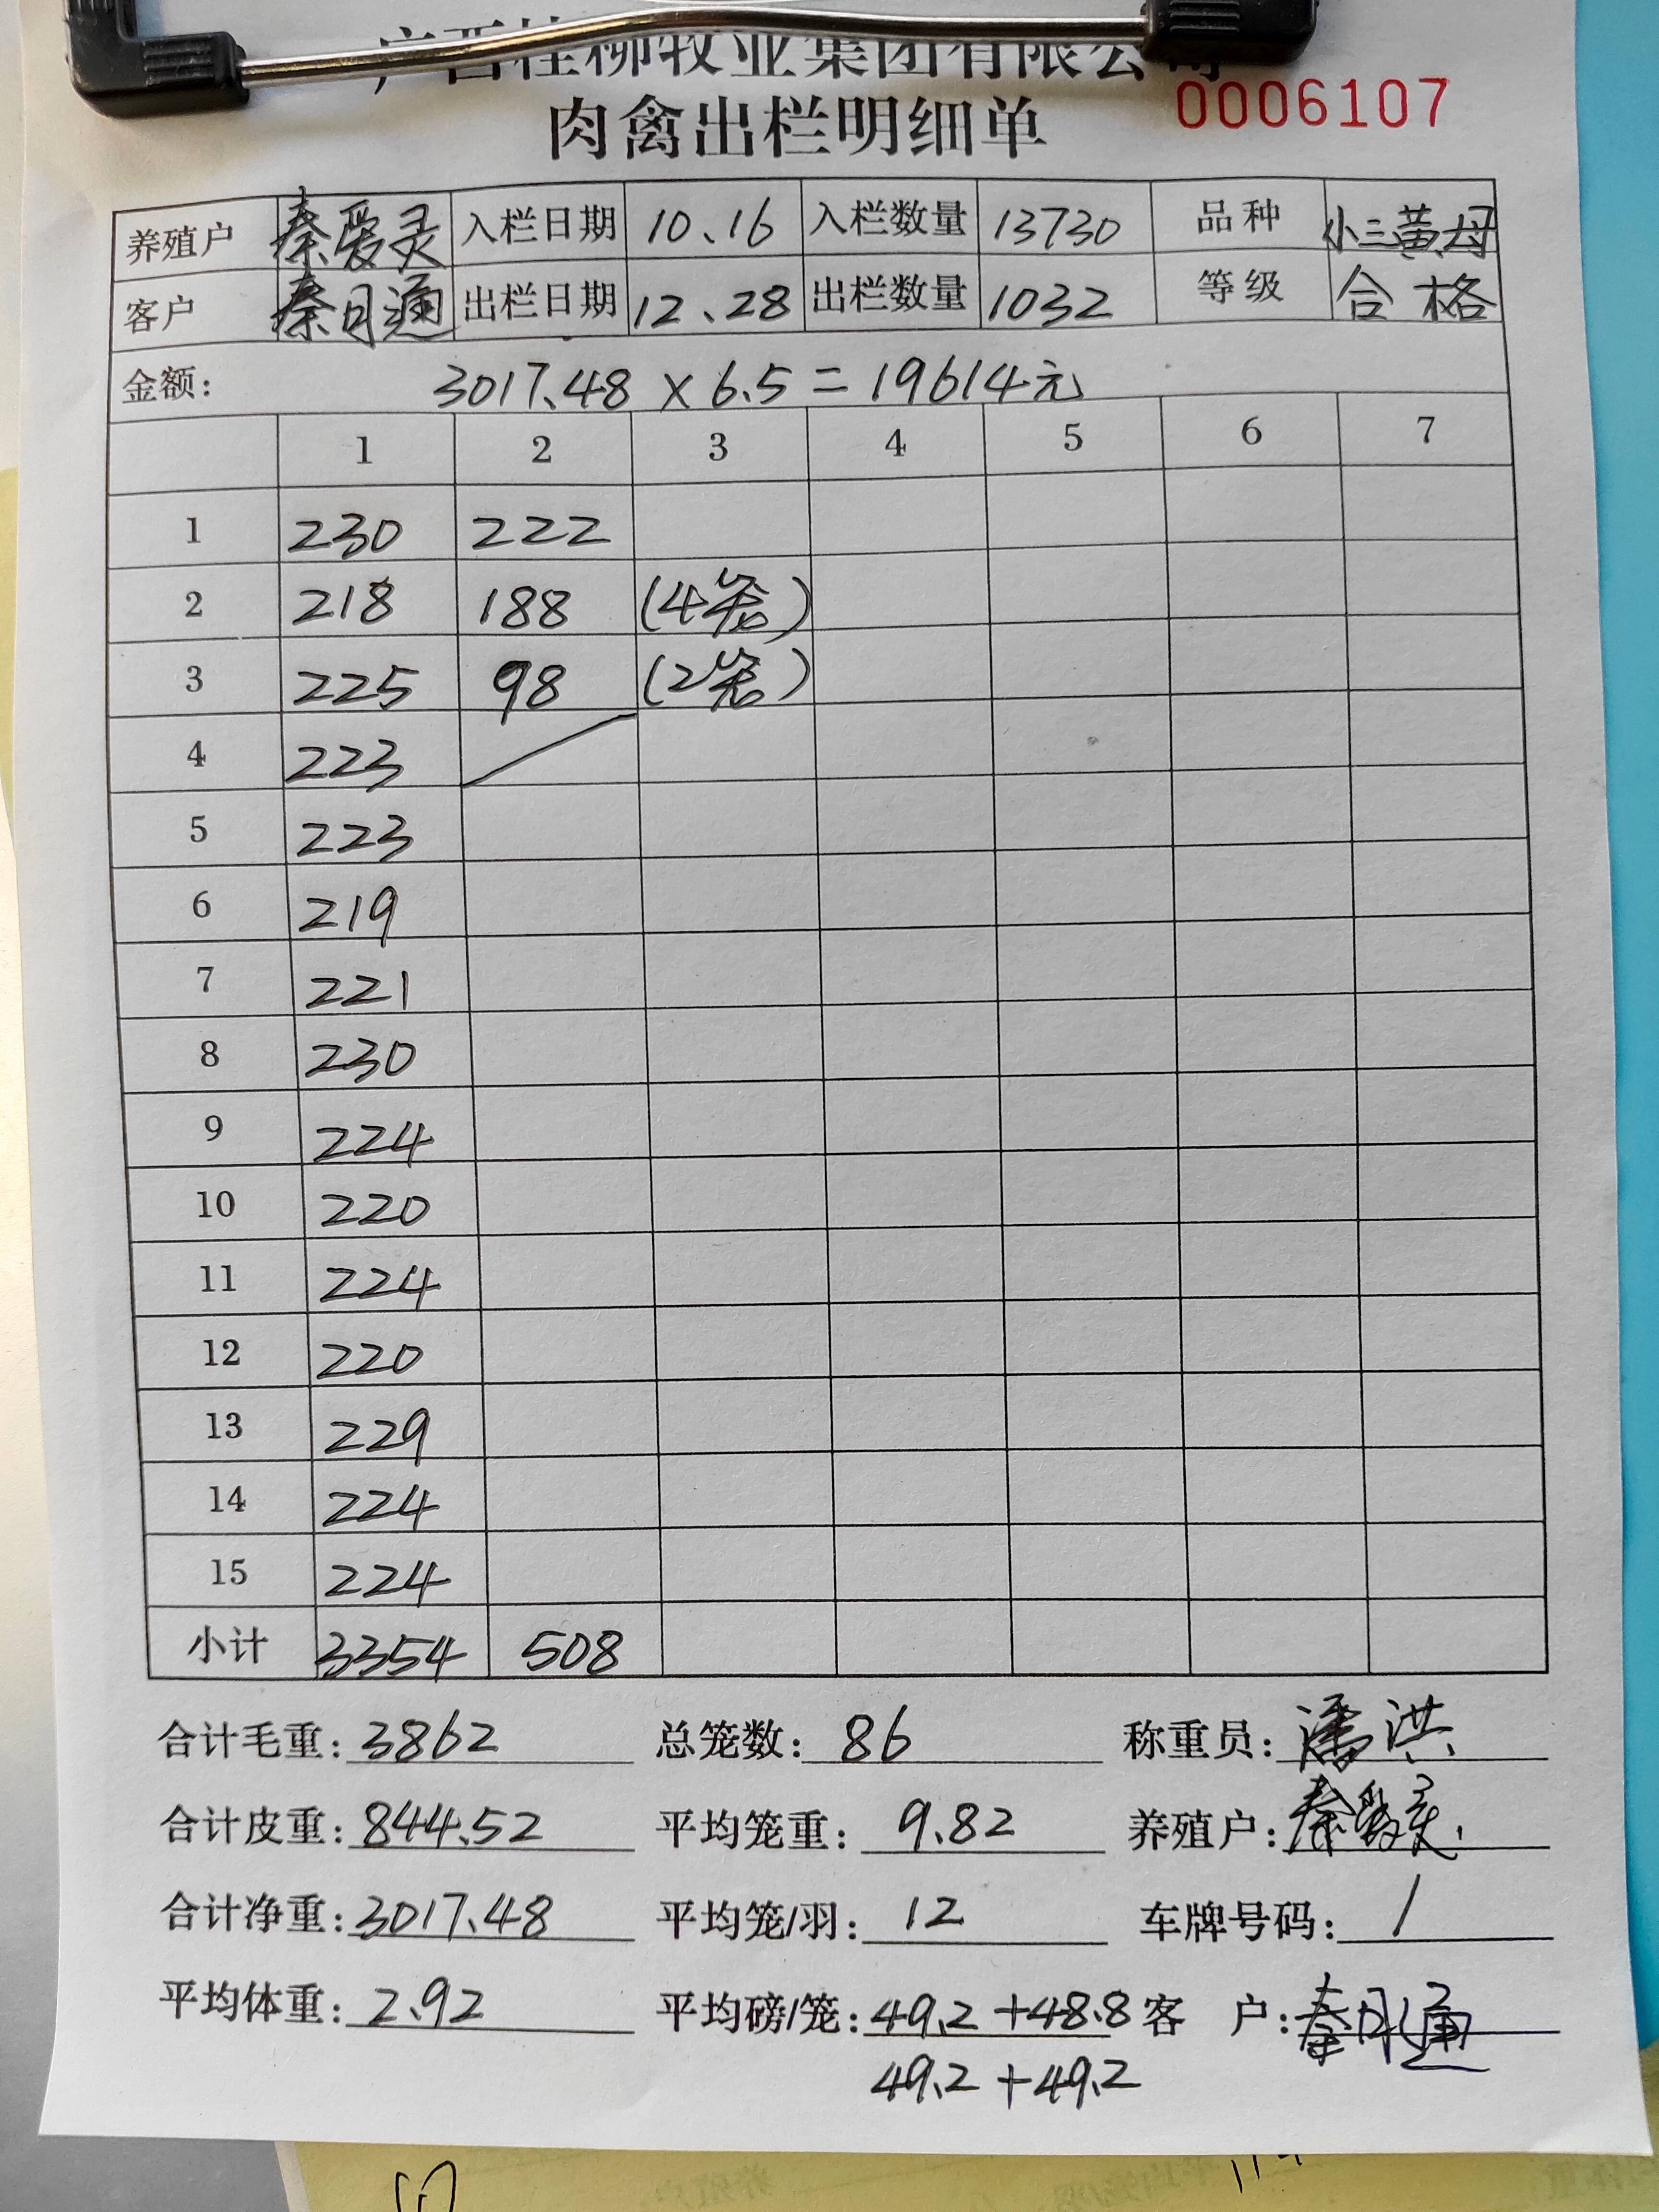 广西桂柳牧业集团有限公司
肉禽出栏明细单 0006107
养殖户 秦爱灵 入栏日期 10.16 入栏数量 13730 品种 小三黄母
客户 秦日通 出栏日期 12.28 出栏数量 1032 等级 合格
金额: 3017.48 × 6.5 = 19614元
1 2 3 4 5 6 7
1 230 222
2 218 188 (4笼)
3 225 98 (2笼)
4 223
5 223
6 219
7 221
8 230
9 224
10 220
11 224
12 220
13 229
14 224
15 224
小计 3354 508
合计毛重: 3862 总笼数: 86 称重员: 潘洪
合计皮重: 844.52 平均笼重: 9.82 养殖户:
合计净重: 3017.48 平均笼/羽: 12 车牌号码: /
平均体重: 2.92 平均磅/笼: 49.2 + 48.8 客 户: 秦日通
49.2 + 49.2